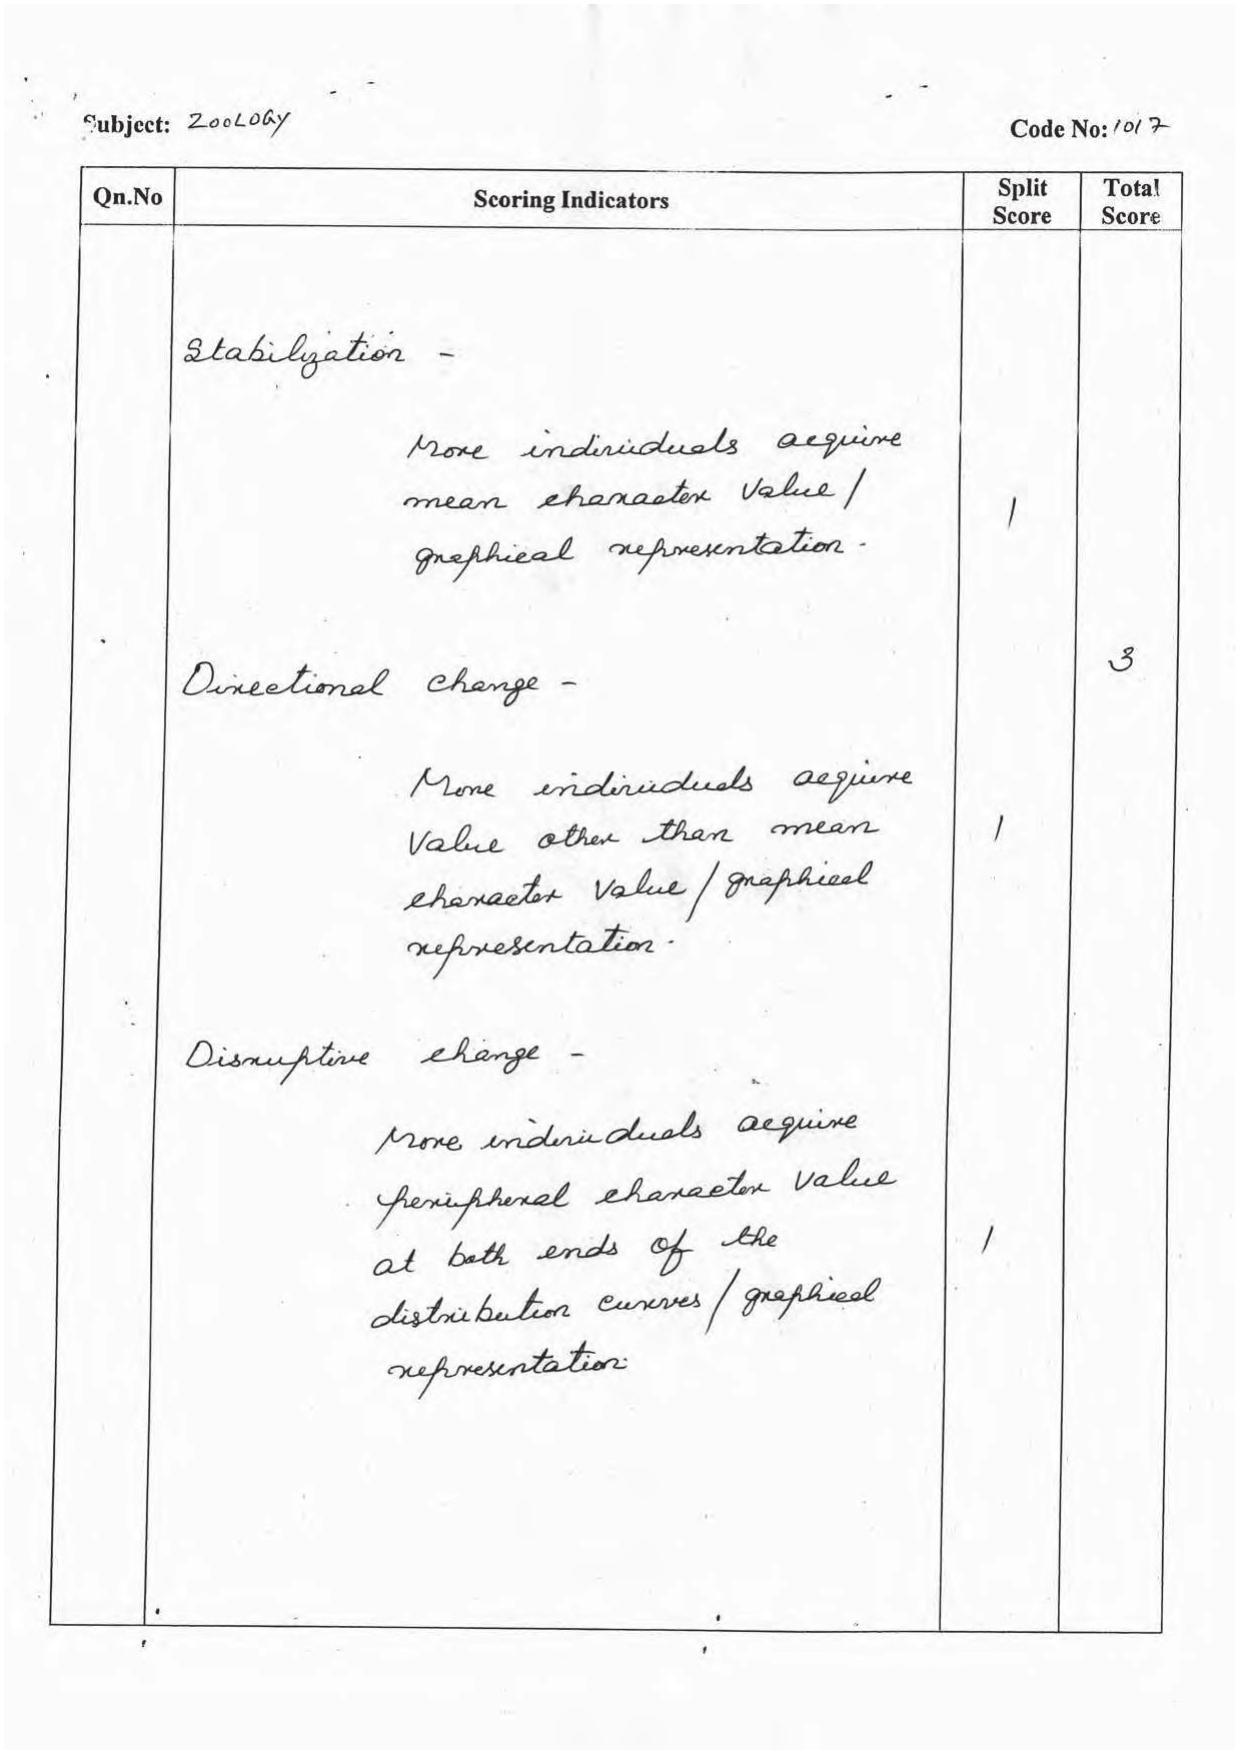 Subject: ZOOLOGY
Code No: 1017
Qn.No
Scoring Indicators
Split Score
Total Score
Stabilization -
More individuals acquire
mean character Value /
graphical representation.
1
3
Directional change -
More individuals acquire
Value other than mean
character Value / graphical
representation.
1
Disruptive change -
More individuals acquire
peripheral character value
at both ends of the
distribution curves / graphical
representation.
1